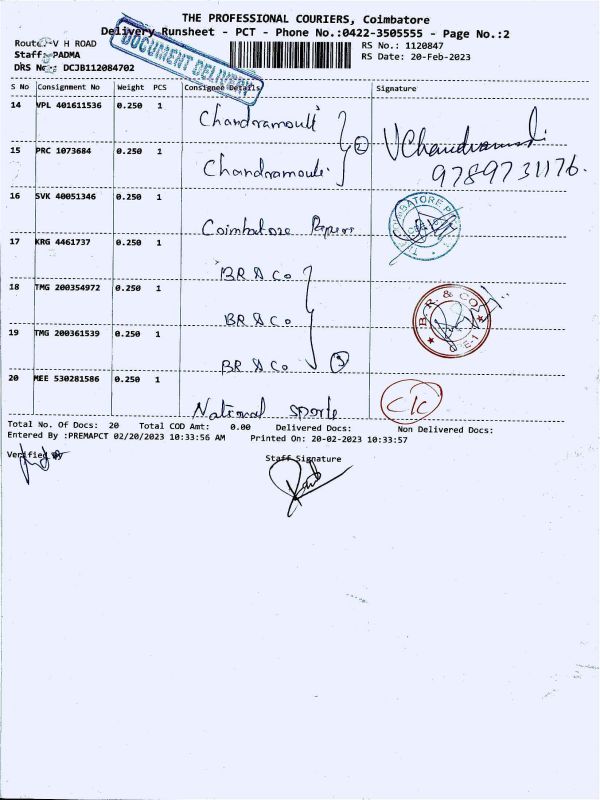 THE PROFESSIONAL COURIERS, Coimbatore
Delivery Runsheet - PCT - Phone No.:0422-3505555 - Page No.:2
Route:-V H ROAD
RS No.: 1120847
Staff: PADMA
RS Date: 20-Feb-2023
DRS No.: DCJB112084702
DOCUMENT DELIVERY
S No Consignment No Weight PCS Consignee Details Signature
14 VPL 401611536 0.250 1 Chandramouli
VChandramouli
15 PRC 1073684 0.250 1 Chandramouli
2
9789731176.
16 SVK 40051346 0.250 1 Coimbatore Papers
17 KRG 4461737 0.250 1 BR & Co
18 TMG 200354972 0.250 1 BR & Co
B.R. & CO
19 TMG 200361539 0.250 1 BR & Co
3
20 MEE 530281586 0.250 1 National Sports
Total No. Of Docs: 20 Total COD Amt: 0.00 Delivered Docs: Non Delivered Docs:
Entered By :PREMAPCT 02/20/2023 10:33:56 AM Printed On: 20-02-2023 10:33:57
Verified By
Staff Signature